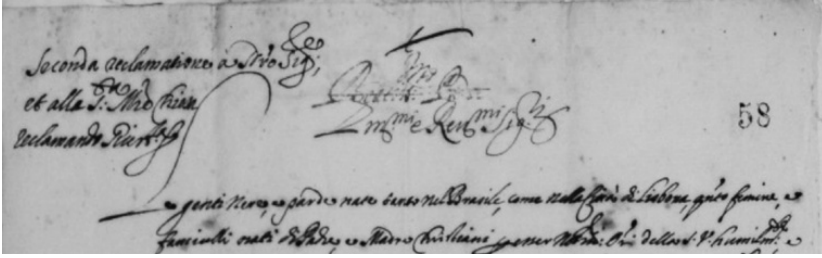 Seconda reclamatione a N'ro Sig.re
et alla S.ta M're Chiesa
reclamando
Em.mi e Rev.mi Sig.ri
58
Le genti nere, e parde nate tanto nel Brasile, come nella Città di Lisbona, q'nto femine, e
fanciulli nati di Padre, e Madre Christiani, esser della S. V. humil.me e